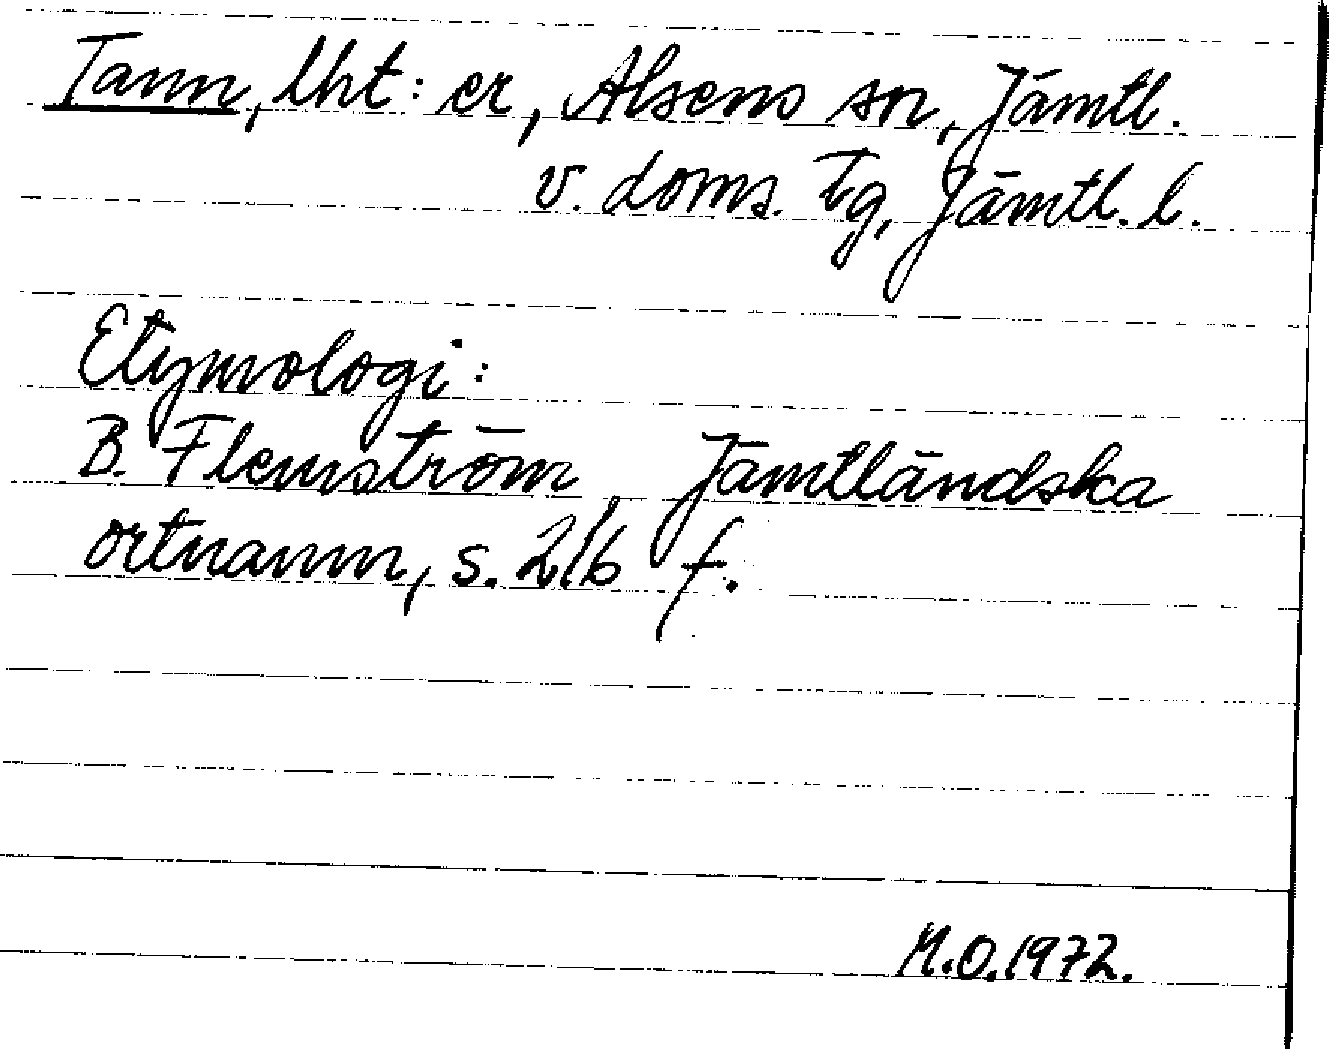 Tann, lht: er, Alsens sn, Jämtl.
v. doms. tg, Jämtl. l.
Etymologi:
B. Flemström, Jämtländska
ortnamn, s. 216 f.
M.O. 1972.